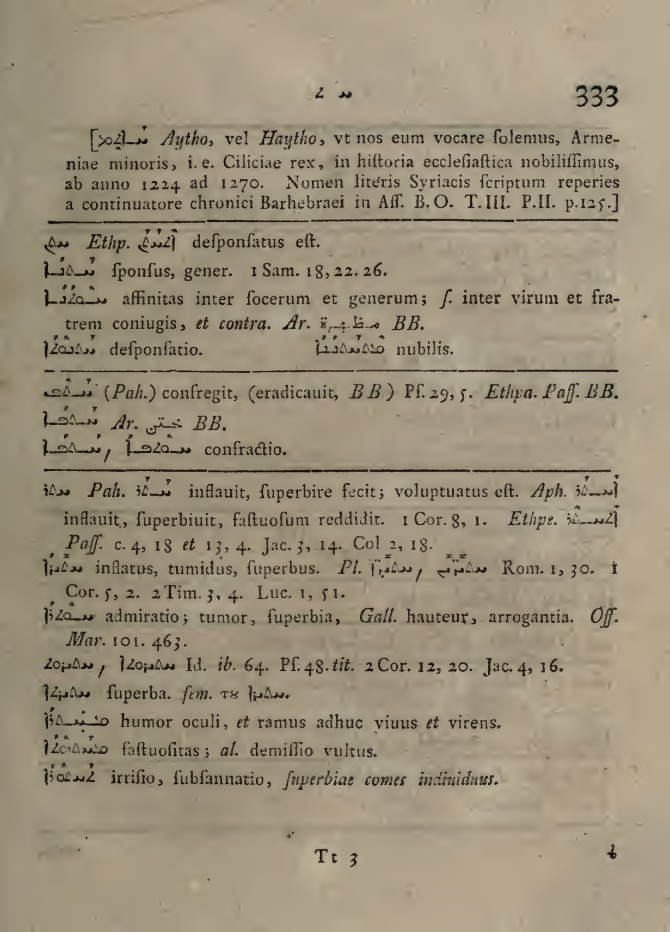 ܚ ܬ 333
Aytho, vel Haytho, vt nos eum vocare ſolemus, Arme-
niae minoris, i. e. Ciliciae rex, in hiſtoria eccleſiaſtica nobiliſſimus,
ab anno 1224 ad 1270. Nomen literis Syriacis ſcriptum reperies
a continuatore chronici Barhebraei in Aſſ. B. O. T. III. P. II. p. 125.]
ܚܬܢ Ethp. ܐܬܚܬܢ deſponſatus eſt.
ܚܬܢܐ ſponſus, gener. 1 Sam. 18, 22. 26.
ܚܘܬܢܐ affinitas inter ſocerum et generum; ſ. inter virum et fra-
trem coniugis, et contra. Ar. BB.
deſponſatio. nubilis.
ܚܬܦ (Pah.) confregit, (eradicauit, BB) Pſ. 29, 5. Ethpa. Paſſ. BB.
ܚܬܦܐ Ar. BB.
ܚܬܦܐ, ܚܘܬܦܐ confractio.
ܚܬܪ Pah. ܚܬܪ inflauit, ſuperbire fecit; voluptuatus eſt. Aph. ܐܚܬܪ
inflauit, ſuperbiuit, faſtuoſum reddidit. 1 Cor. 8, 1. Ethpe. ܐܬܚܬܪ
Paſſ. c. 4, 18 et 13, 4. Jac. 3, 14. Col 2, 18.
ܚܬܝܪܐ inflatus, tumidus, ſuperbus. Pl. ܚܬܝܪ̈ܐ, ܚܬܝܪ̈ܝܢ Rom. 1, 30. 1
Cor. 5, 2. 2 Tim. 3, 4. Luc. 1, 51.
ܚܘܬܪܐ admiratio; tumor, ſuperbia, Gall. hauteur, arrogantia. Off.
Mar. 101. 463.
ܚܬܝܪܘܬ, ܚܬܝܪܘܬܐ Id. ib. 64. Pſ. 48. tit. 2 Cor. 12, 20. Jac. 4, 16.
ܚܬܝܪܬܐ ſuperba. fem. τȣ ܚܬܝܪܐ.
humor oculi, et ramus adhuc viuus et virens.
faſtuoſitas; al. demiſſio vultus.
irriſio, ſubſannatio, ſuperbiae comes indiuiduus.
Tt 3